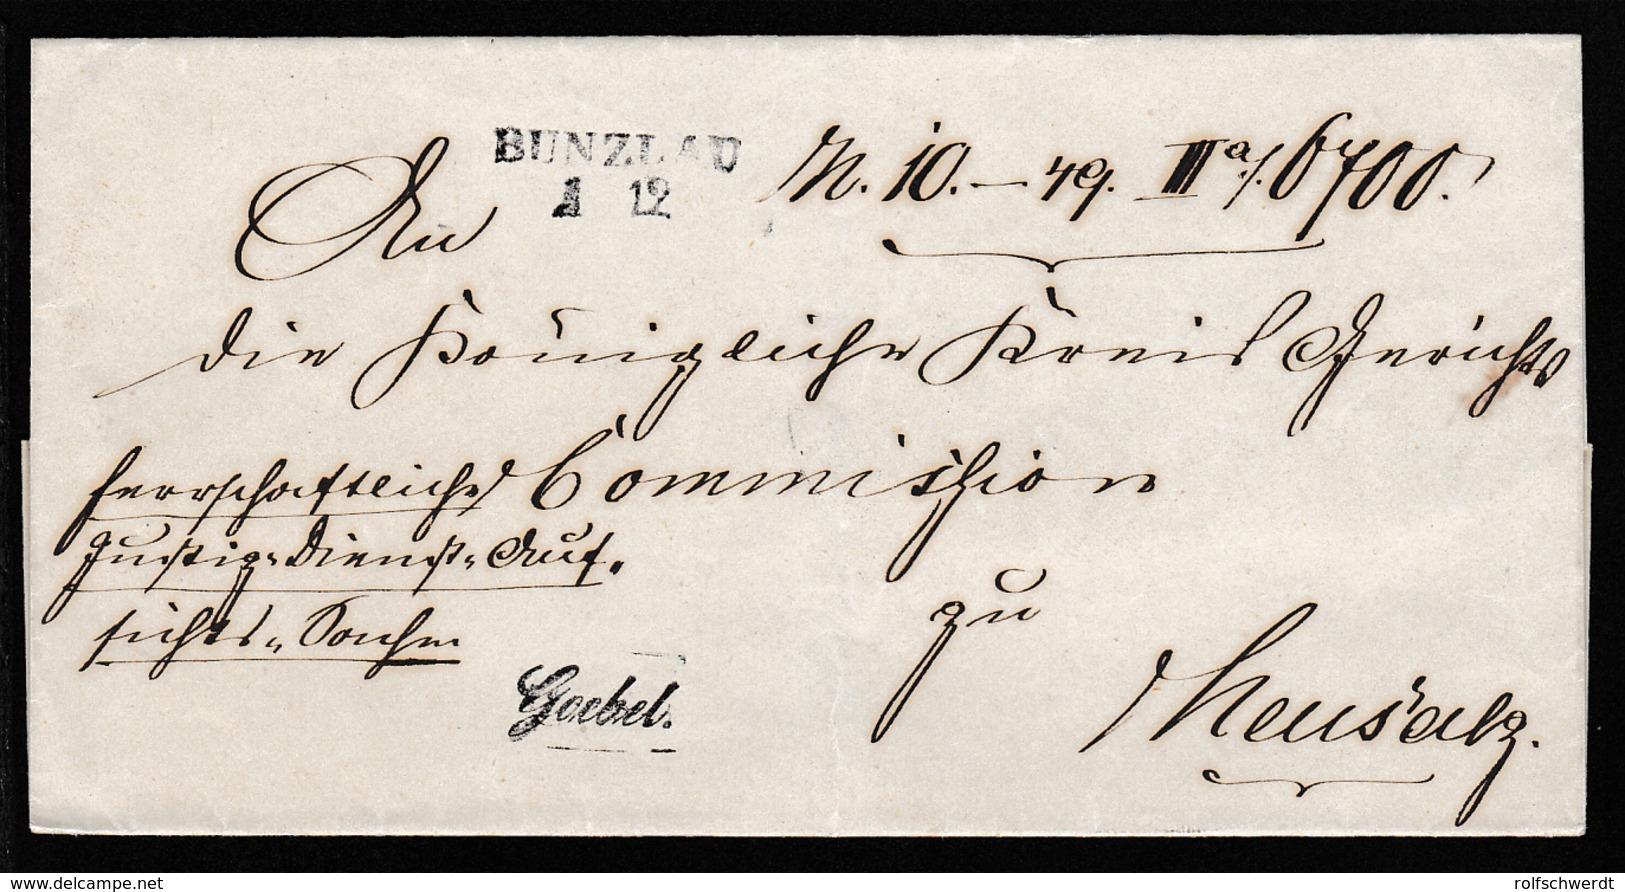 BUNZLAU
1 12
N. 10. – 49. III a/. 6700.
An
die Königliche Kreis Gerichts
Commission
herrschaftliche
Justiz-Dienst-Auf-
sichts-Sachen
zu
Neusalz.
Goebel.
delcampe.net
rolfschwerdt